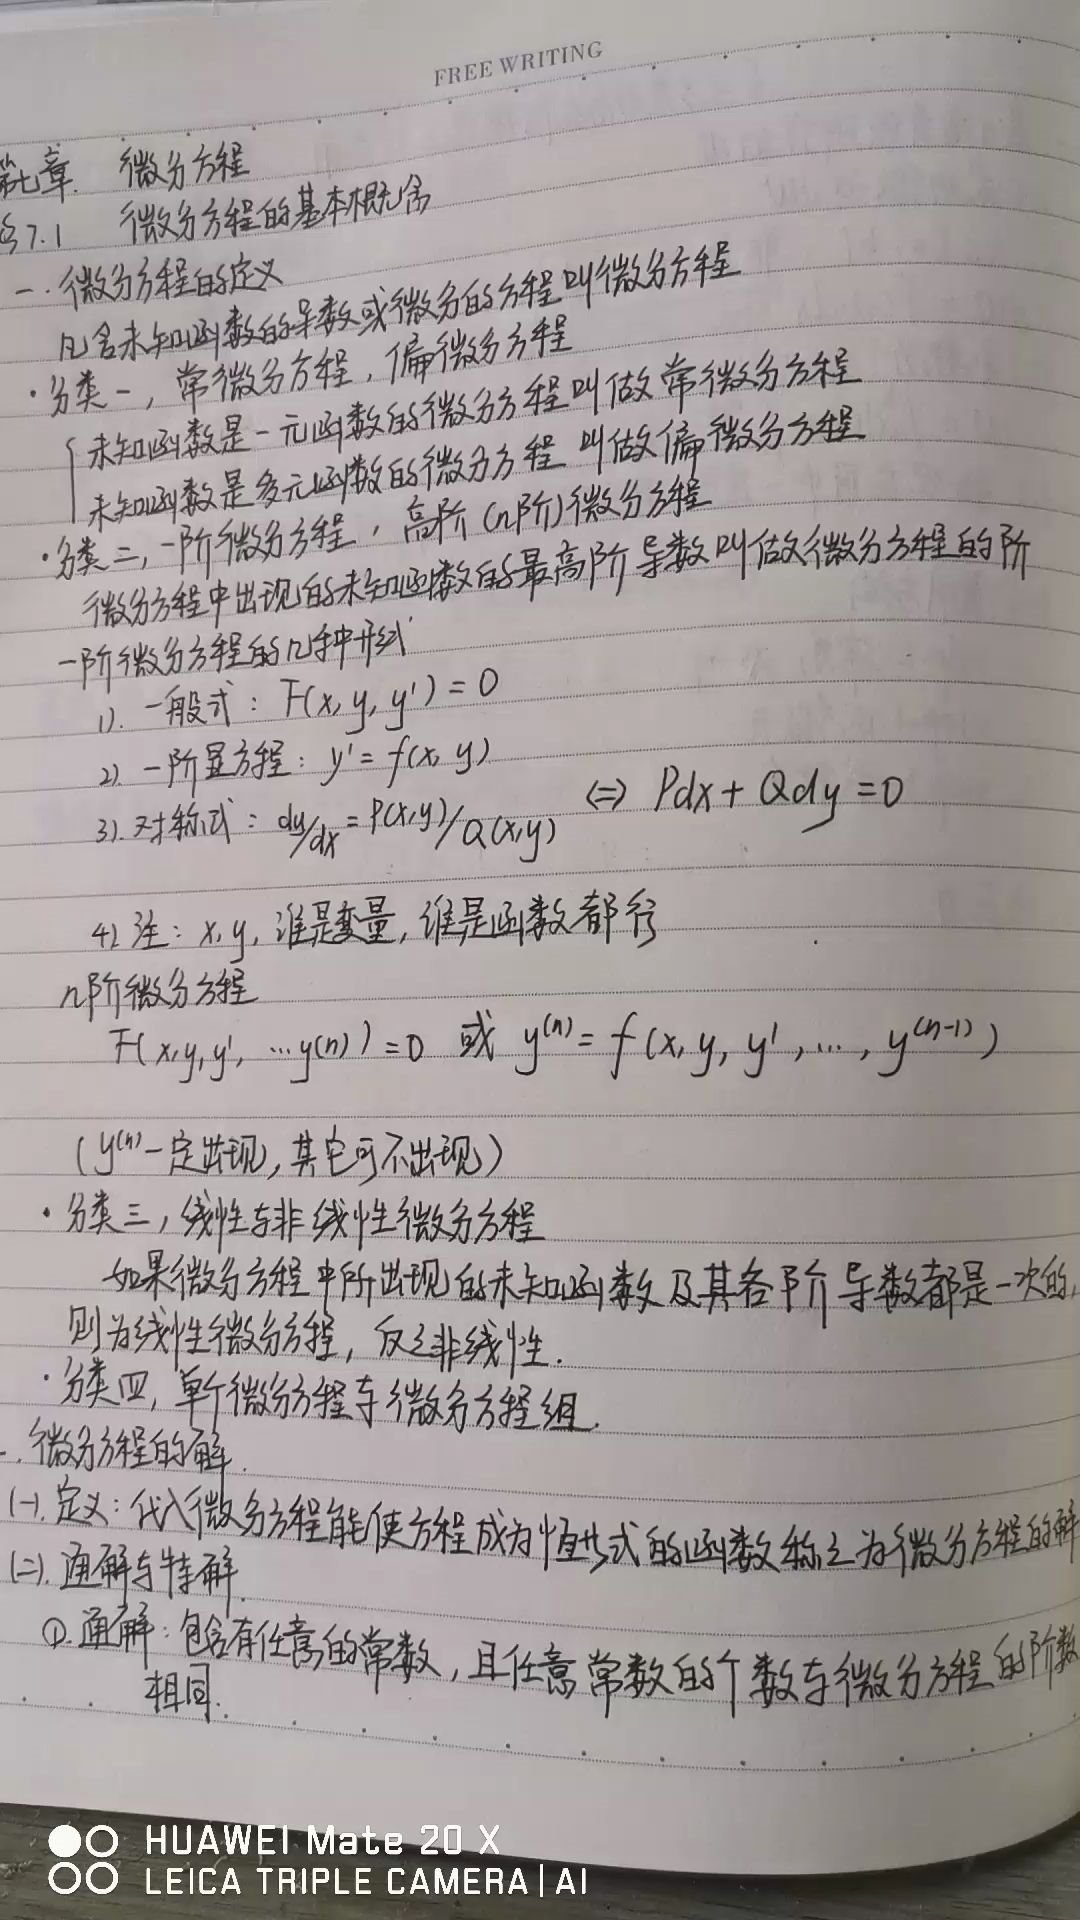 FREE WRITING
第七章. 微分方程
§7.1 微分方程的基本概念
一. 微分方程的定义
凡含未知函数的导数或微分的方程叫微分方程
·分类一, 常微分方程, 偏微分方程
{未知函数是一元函数的微分方程叫做常微分方程
未知函数是多元函数的微分方程 叫做偏微分方程
·分类二, 一阶微分方程, 高阶(n阶)微分方程
微分方程中出现的未知函数的最高阶导数叫做微分方程的阶
一阶微分方程的几种形式
1). 一般式: F(x, y, y') = 0
2) 一阶显方程: y' = f(x, y)
3). 对称式: dy/dx = P(x,y)/Q(x,y) ⇔ Pdx + Qdy = 0
4) 注: x, y, 谁是变量, 谁是函数都行
n阶微分方程
F(x, y, y', …y(n)) = 0 或 y⁽ⁿ⁾ = f(x, y, y', …, y⁽ⁿ⁻¹⁾)
(y⁽ⁿ⁾一定出现, 其它可不出现)
·分类三, 线性与非线性微分方程
如果微分方程中所出现的未知函数及其各阶导数都是一次的,
则为线性微分方程, 反之非线性.
·分类四, 单个微分方程与微分方程组.
微分方程的解.
(一). 定义: 代入微分方程能使方程成为恒等式的函数称之为微分方程的解
(二). 通解与特解.
①. 通解: 包含有任意的常数, 且任意常数的个数与微分方程的阶数
相同.
HUAWEI Mate 20 X
LEICA TRIPLE CAMERA | AI